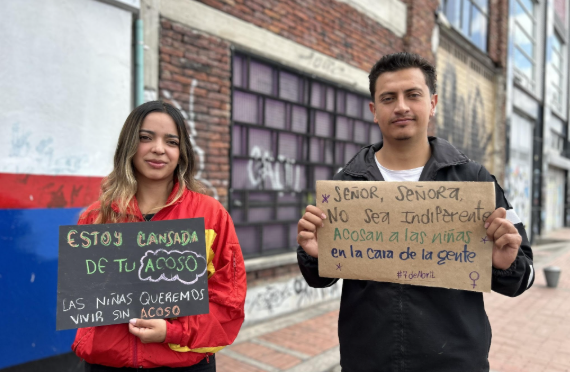 ESTOY CANSADA
DE TU ACOSO
LAS NIÑAS QUEREMOS
VIVIR SIN ACOSO
SEÑOR, SEÑORA,
NO SEA INDIFERENTE
ACOSAN A LAS NIÑAS
EN LA CARA DE LA GENTE
#7deABRIL